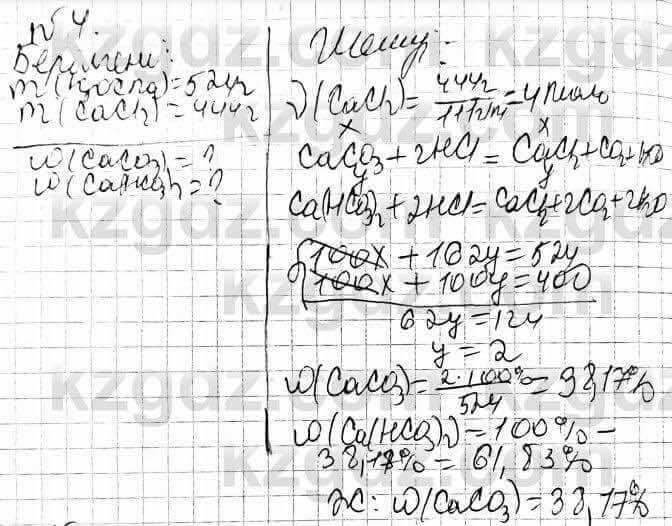 № 4.
Берілгені:
m(қоспа)=524г
m(CaCl₂)=444г
ω(CaCO₃)=?
ω(Ca(HCO₃)₂=?
Шешуі:
ν(CaCl₂)= 444г / 111г/м =4моль
x x
CaCO₃+2HCl=CaCl₂+CO₂+H₂O
y y
Ca(HCO₃)₂+2HCl=CaCl₂+2CO₂+2H₂O
100x + 162y=524
100x + 100y=400
62y=124
y=2
ω(CaCO₃)= 2·100% / 524 =38,17%
ω(Ca(HCO₃)₂)=100%–
38,17%=61,83%
Ж: ω(CaCO₃)=38,17%
kzgdz.com